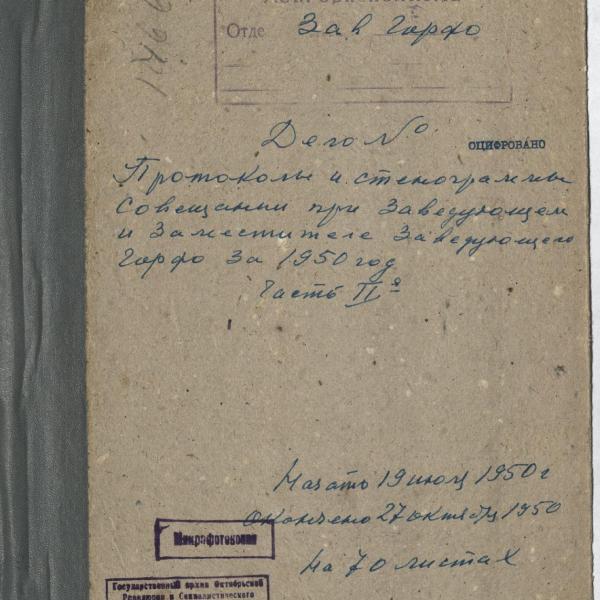 Отде Зав Горфо
Дело №
ОЦИФРОВАНО
Протоколы и стенограммы
совещании при Заведующем
и Заместителе Заведующего
Горфо За 1950 год
Часть IIя
Начато 19 июля 1950 г
Окончено 27 октября 1950
На 70 листах
Микрофотокопия
Государственный архив Октябрьской
Революции и Социалистического